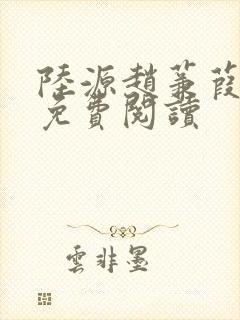 陸源趙蒹葭
免費閱讀
雲非墨